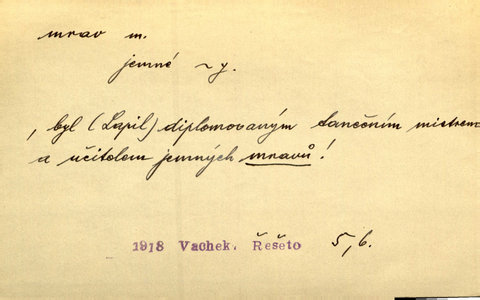 mrav m.
jemné ~y.
, byl (Šupil) diplomovaným tanečním mistrem
a učitelem jemných mravů!
1918 Vachek. Řešeto 5,6.